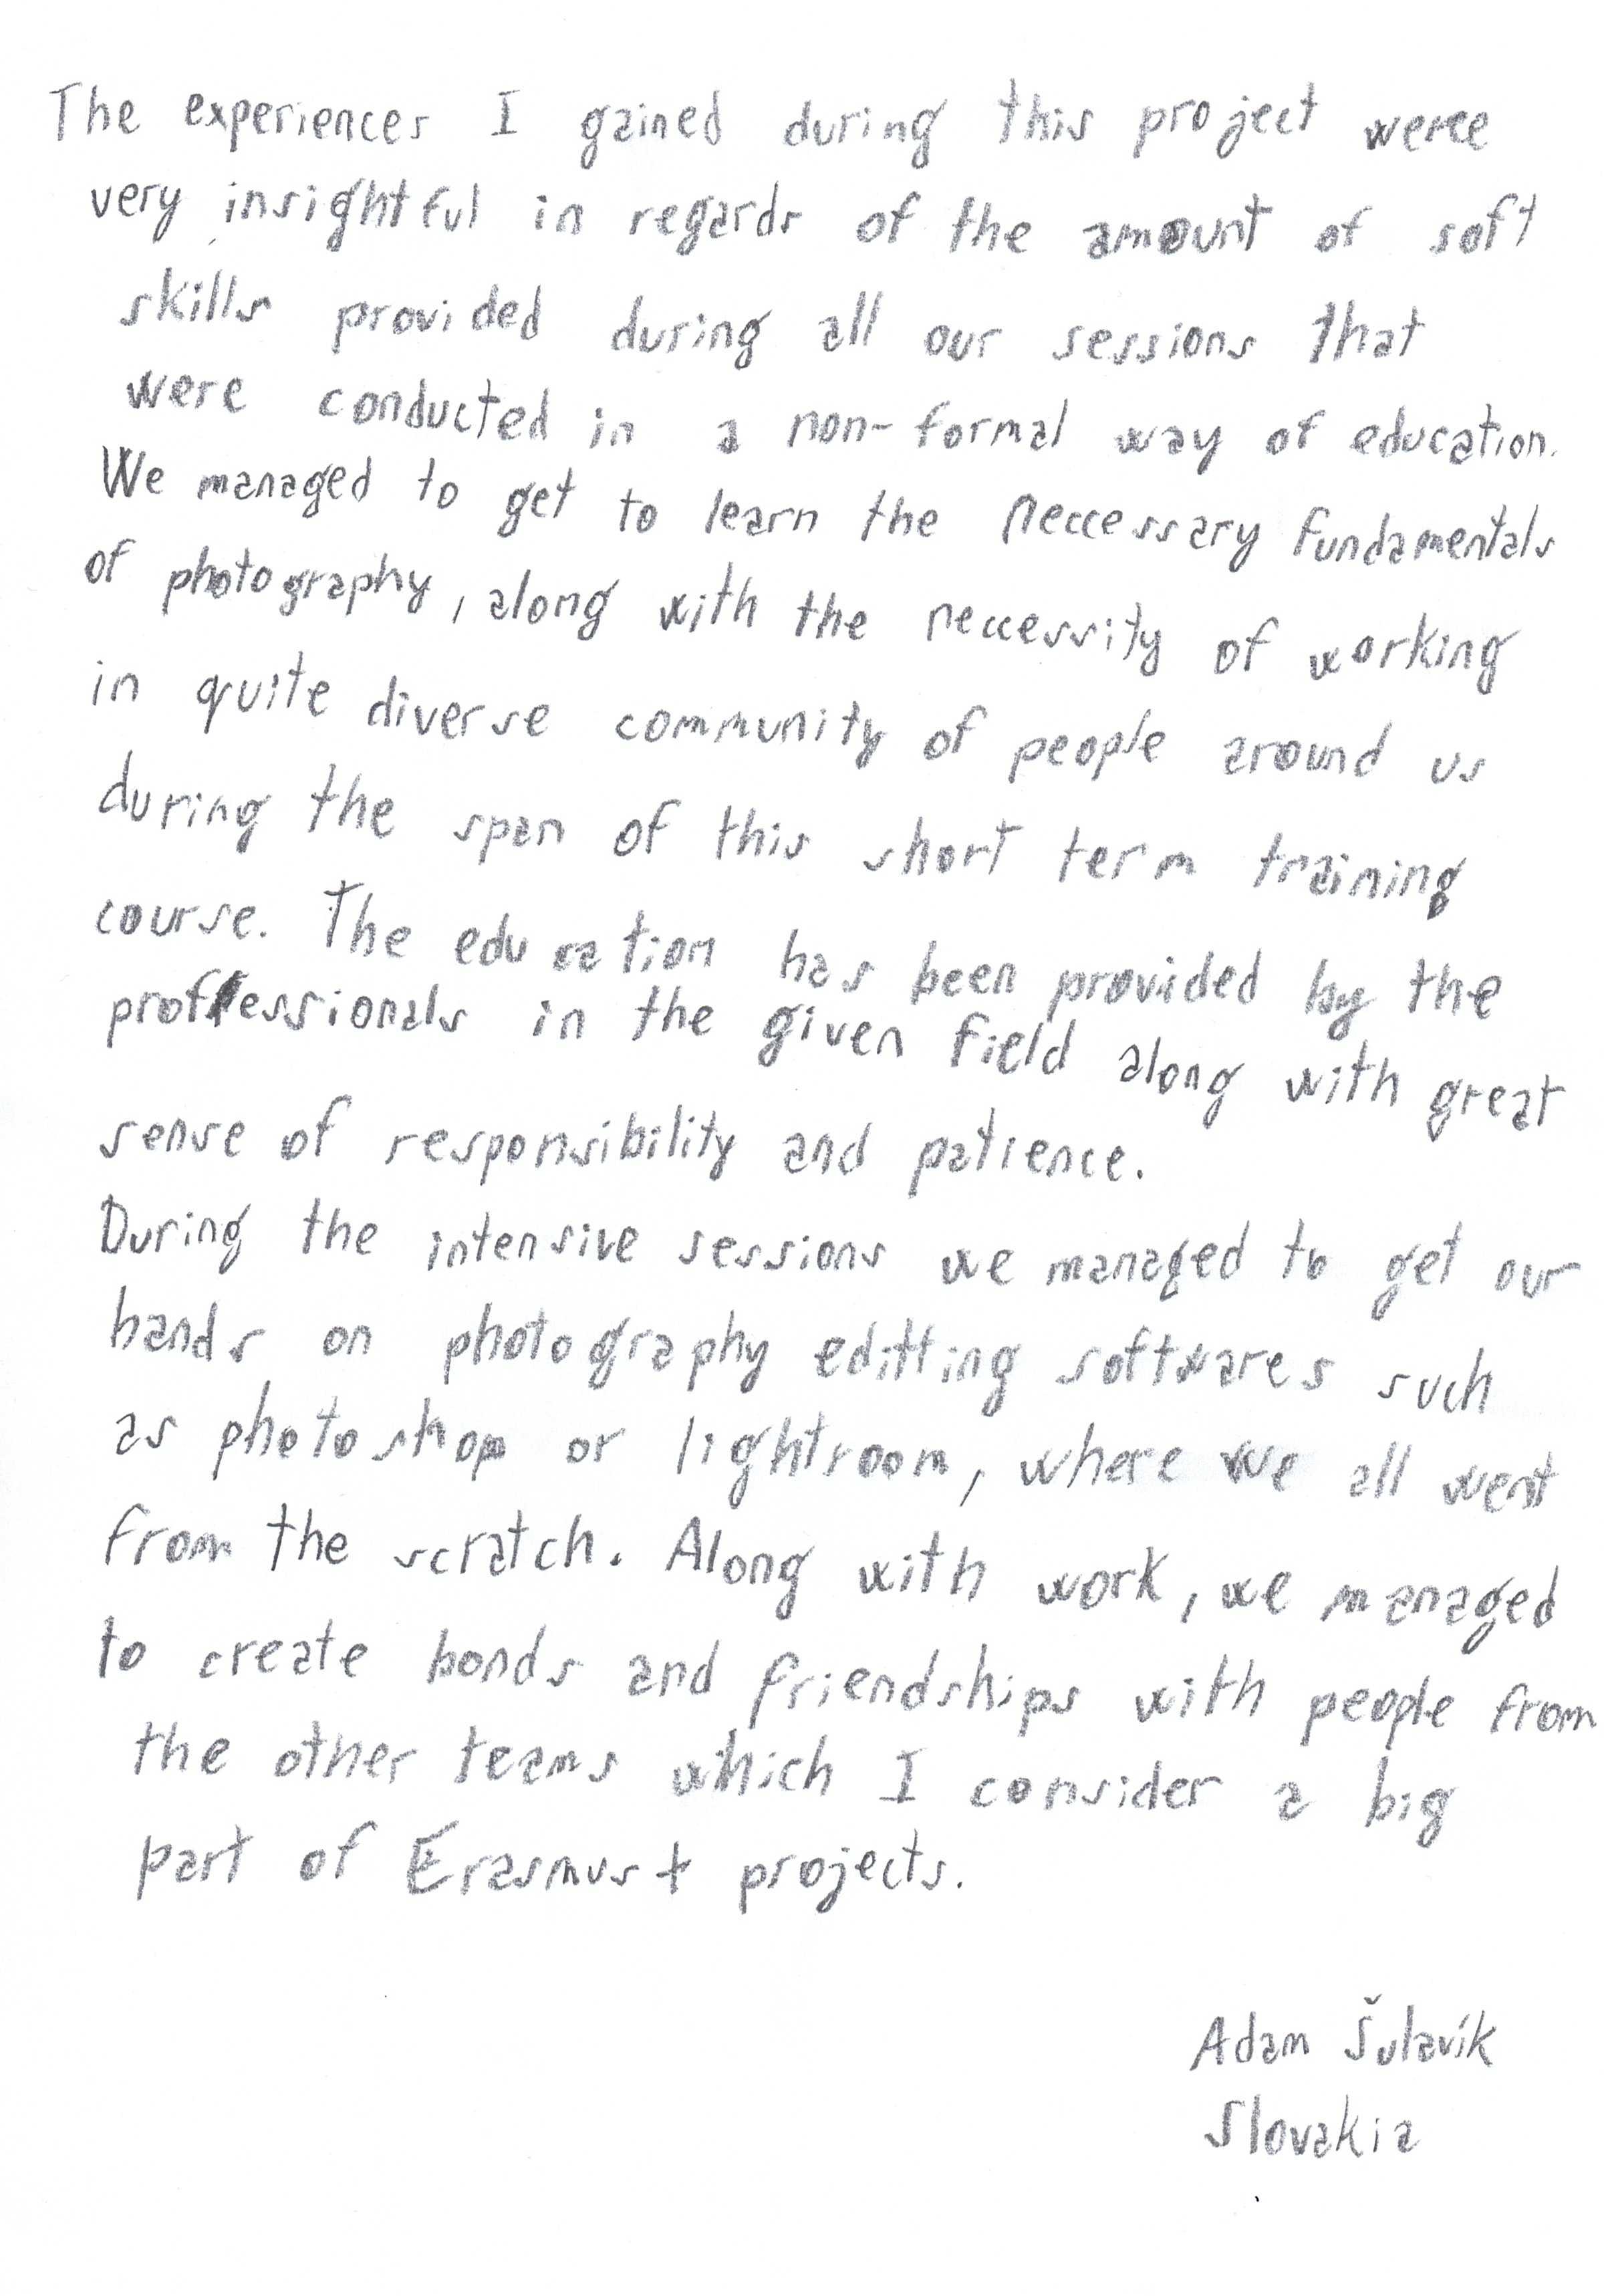 The experiences I gained during this project were
very insightful in regards of the amount of soft
skills provided during all our sessions that
were conducted in a non-formal way of education.
We managed to get to learn the neccessary fundamentals
of photography, along with the neccessity of working
in quite diverse community of people around us
during the span of this short term training
course. The education has been provided by the
professionals in the given field along with great
sense of responsibility and patience.
During the intensive sessions we managed to get our
hands on photography editting softwares such
as photoshop or lightroom, where we all went
from the scratch. Along with work, we managed
to create bonds and friendships with people from
the other teams which I consider a big
part of Erasmus+ projects.
Adam Šulavík
Slovakia